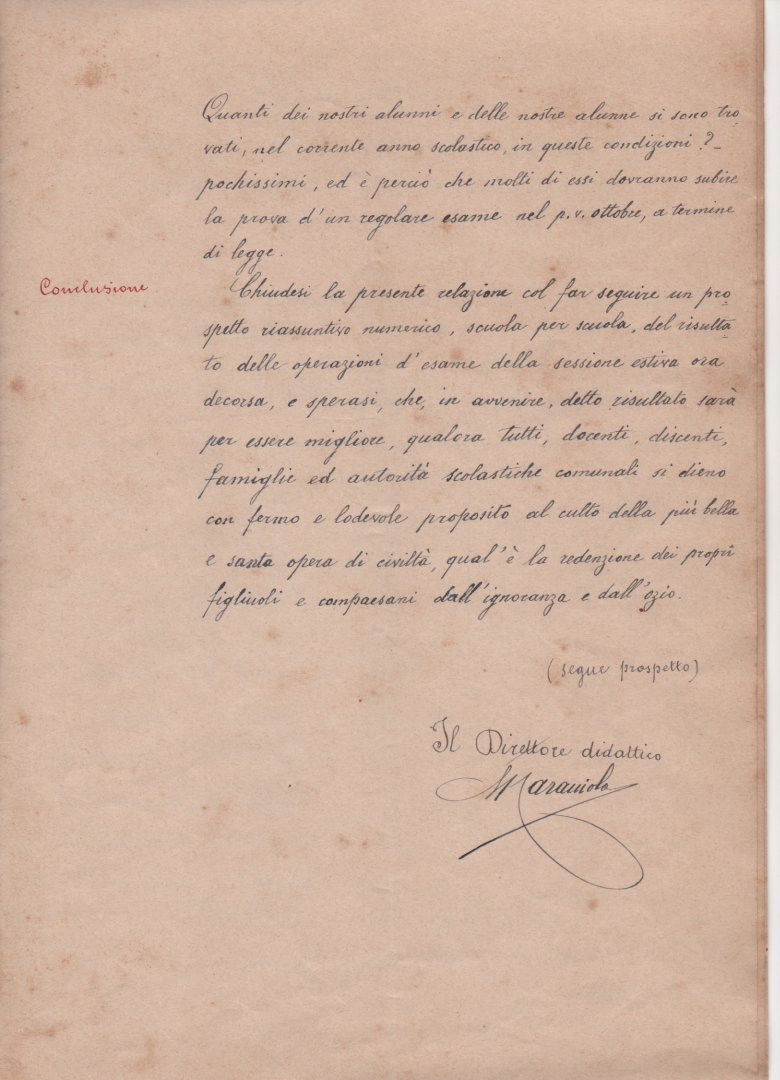 Quanti dei nostri alunni e delle nostre alunne si sono tro
vati, nel corrente anno scolastico, in queste condizioni ?_
pochissimi, ed è perciò che molti di essi dovranno subire
la prova d'un regolare esame nel p.v. ottobre, a termine
di legge.
Conclusione
Chiudesi la presente relazione col far seguire un pro
spetto riassuntivo numerico, scuola per scuola, del risulta
to delle operazioni d'esame della sessione estiva ora
decorsa, e sperasi, che, in avvenire, detto risultato sarà
per essere migliore, qualora tutti, docenti, discenti,
famiglie ed autorità scolastiche comunali si dieno
con fermo e lodevole proposito al culto della più bella
e santa opera di civiltà, qual'è la redenzione dei proprî
figliuoli e compaesani dall'ignoranza e dall'ozio.
(segue prospetto)
Il Direttore didattico